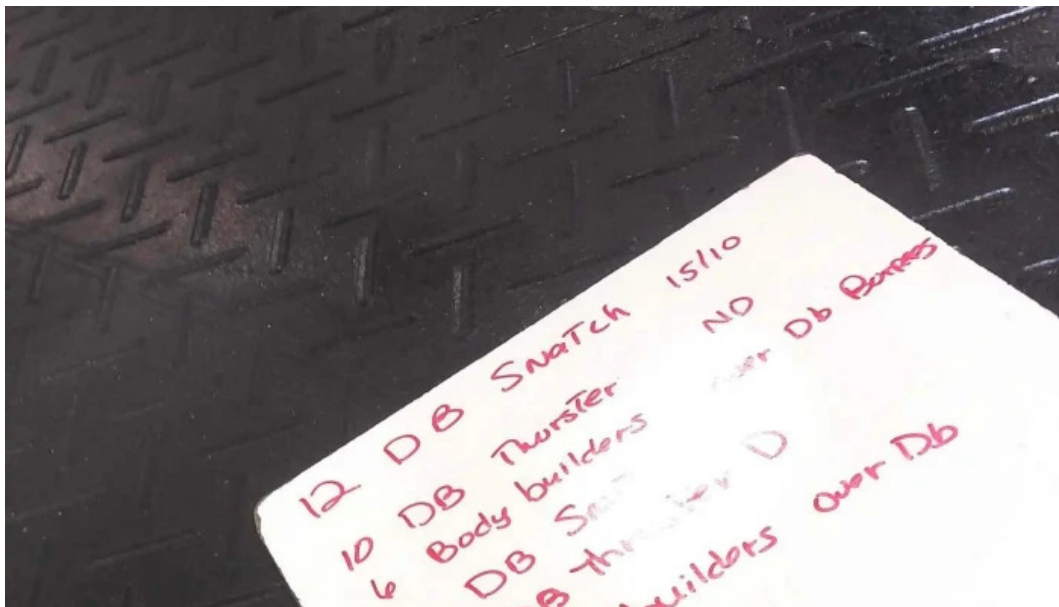 12 DB SNaTCh 15/10
10 DB Thurster ND
6 Body builders over Db
DB
DB thruster D
builders over Db